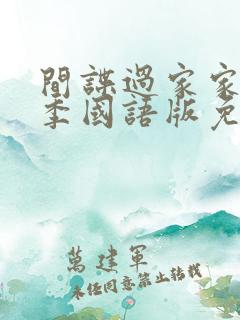 間諜過家家
季國語版免
萬建軍
未任同意禁止转载